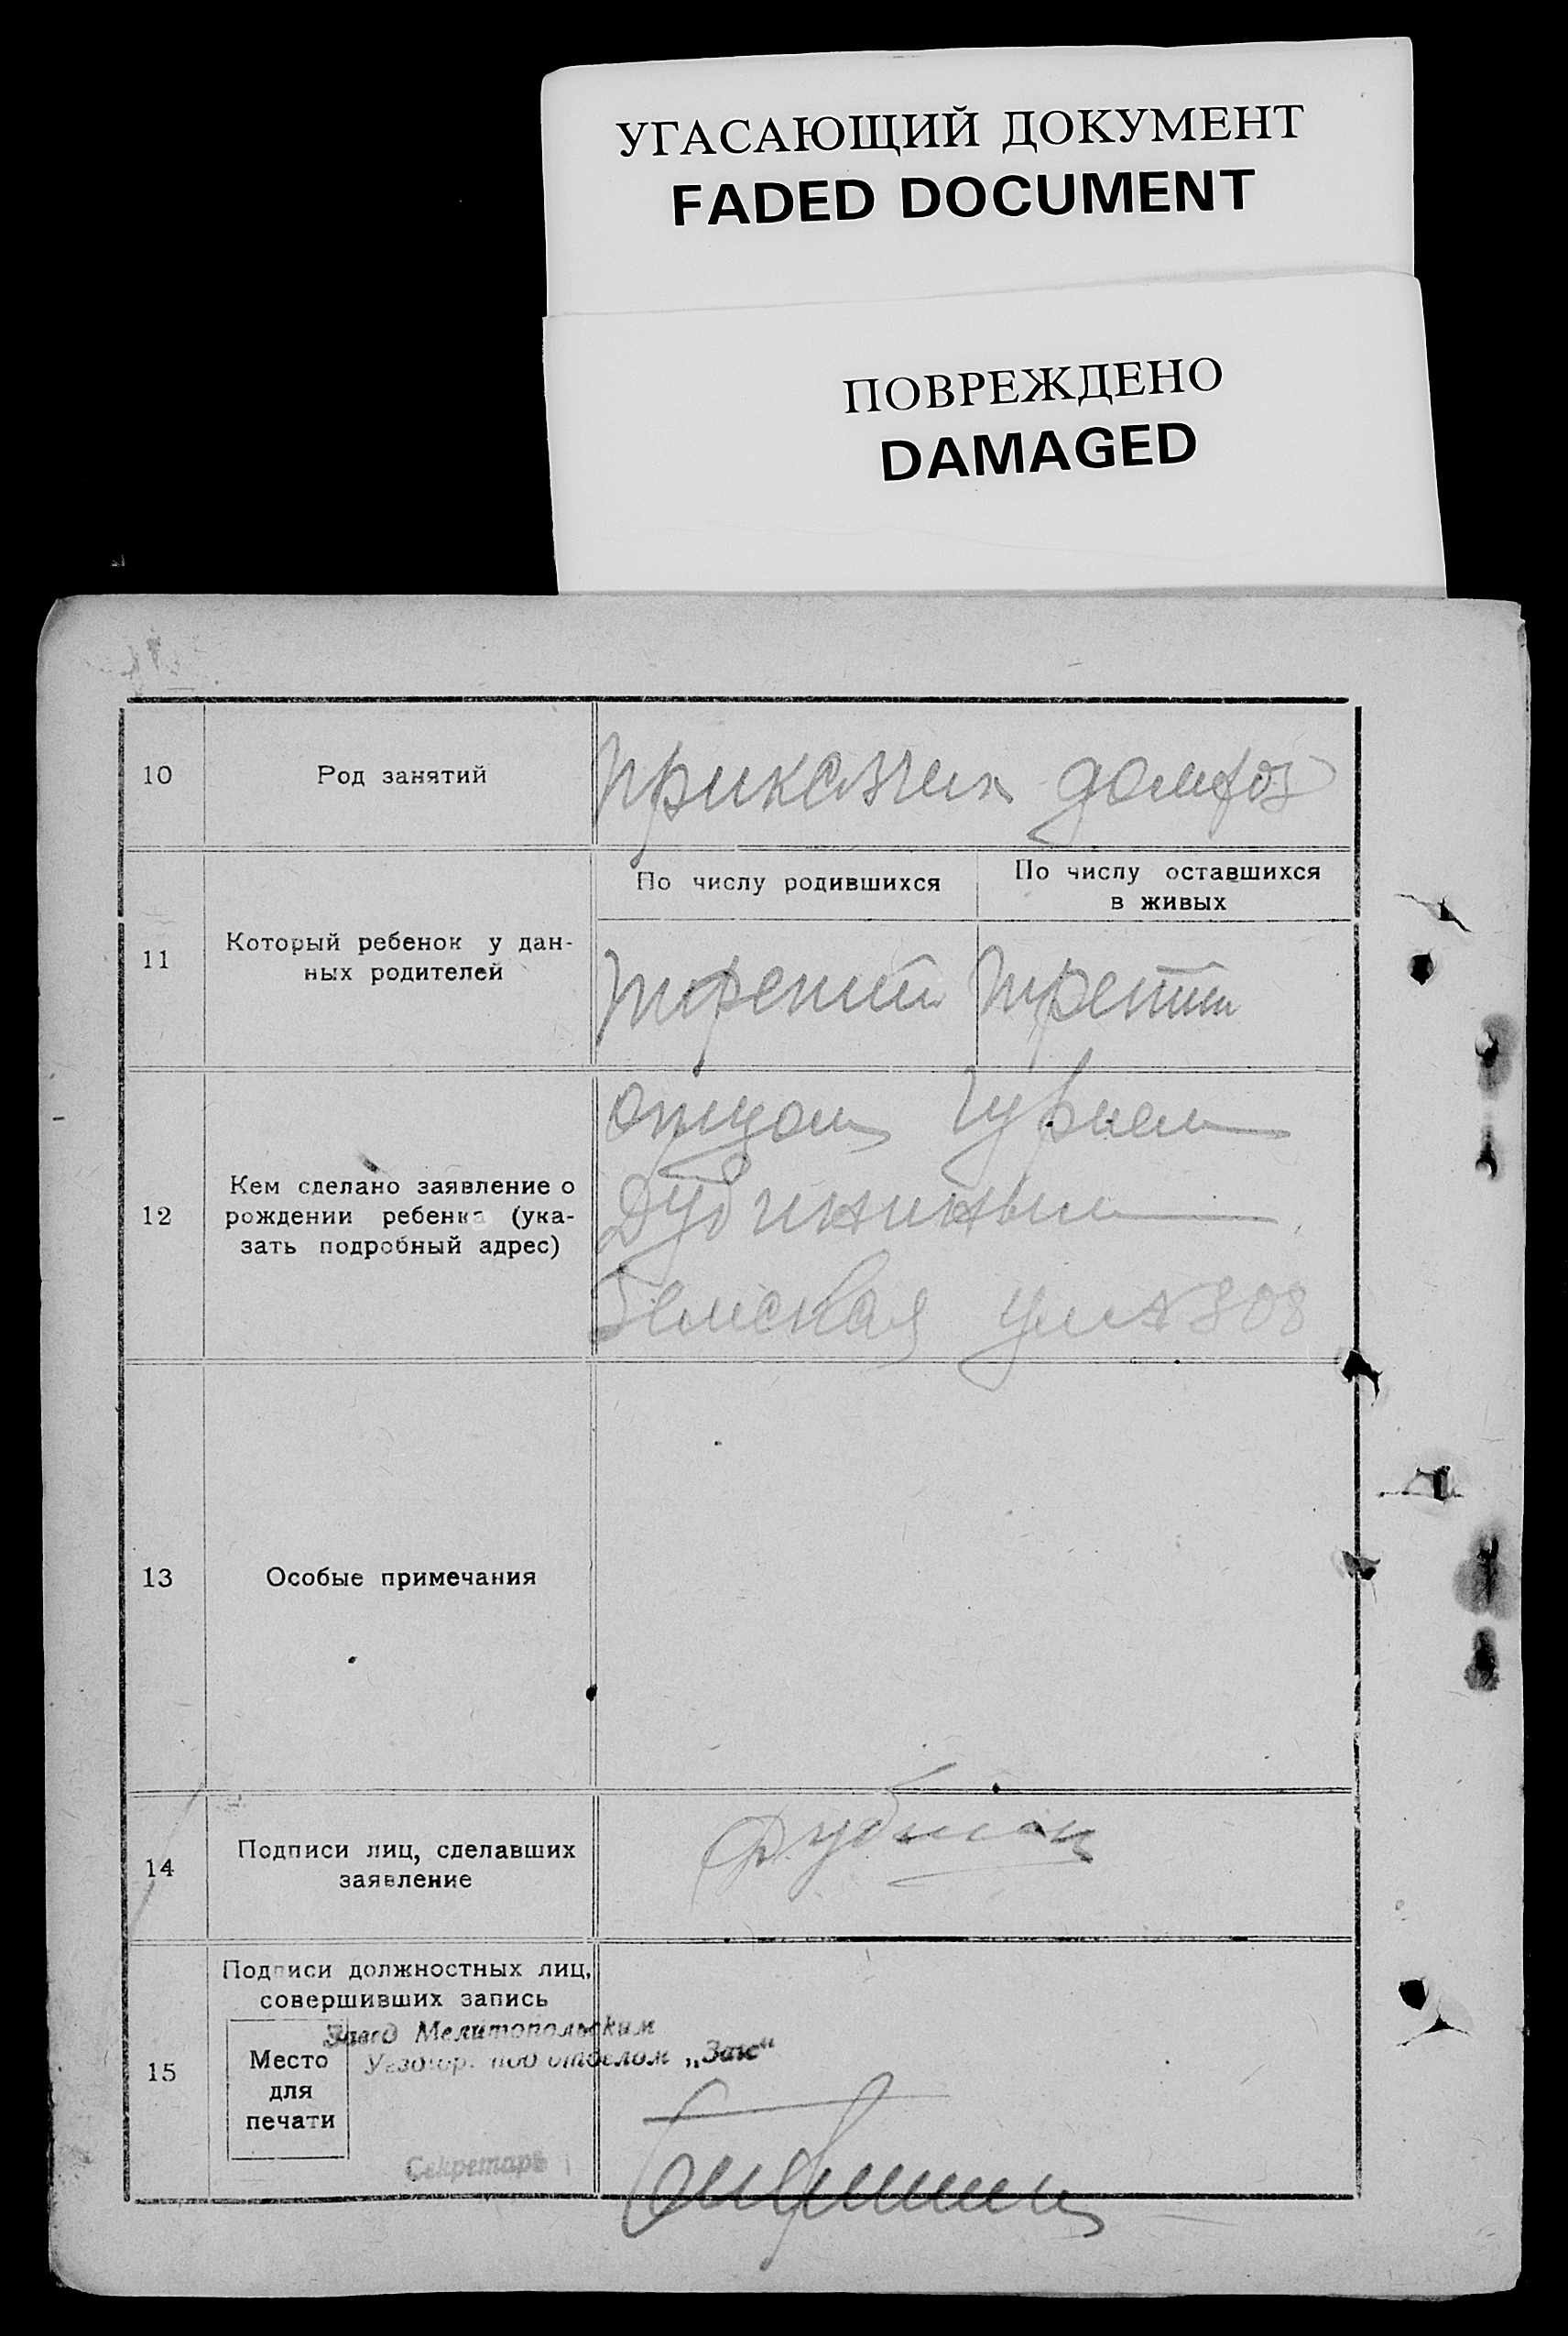 УГАСАЮЩИЙ ДОКУМЕНТ
FADED DOCUMENT
ПОВРЕЖДЕНО
DAMAGED
10
Род занятий
приказчик
11
Который ребенок у дан-
ных родителей
По числу родившихся
По числу оставшихся
в живых
третий
третий
12
Кем сделано заявление о
рождении ребенка (ука-
зать подробный адрес)
отцом Гурием
Дубининым
Земская ул № 308
13
Особые примечания
14
Подписи лиц, сделавших
заявление
15
Подписи должностных лиц,
совершивших запись
Место
для
печати
Завед Мелитопольским
под отделом „Загс“
Секретарь